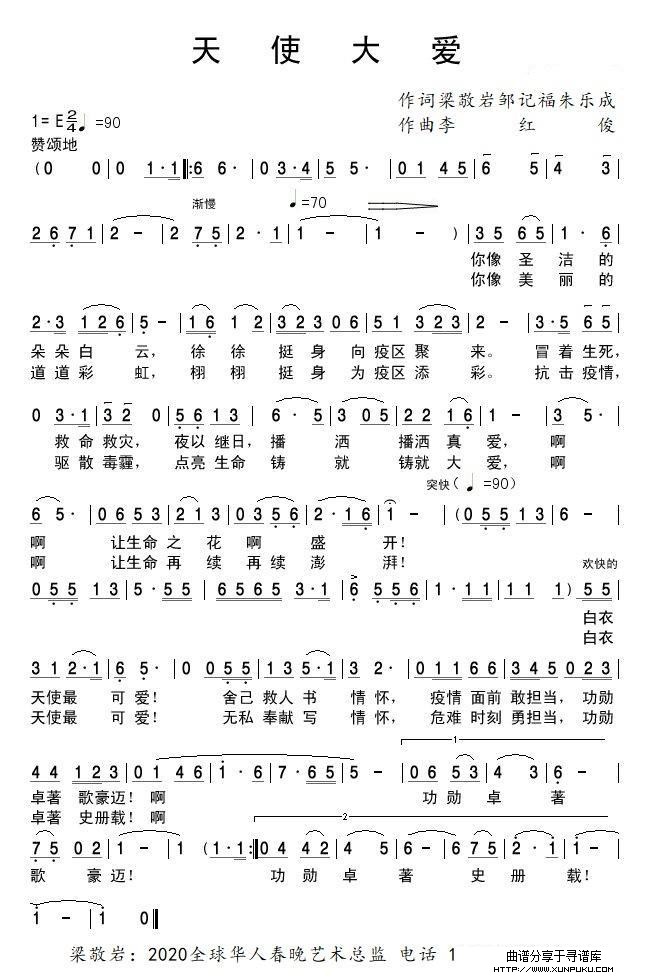 天 使 大 爱
作词梁敬岩邹记福朱乐成
1=E 2/4 ♩=90
作曲李 红 俊
赞颂地
(0 0 | 0 1·1 |: 6 6· | 0 3·4 | 5 5· | 0 4 5 | 6 5 | 4 3 |
渐慢 ♩=70
2 6 7 1 | 2 - | 2 7 5 | 2· 1 | 1 - | 1 - ) | 3 5 6 5 | 1· 6 |
你像 圣 洁 的
你像 美 丽 的
2·3 1 2 6 | 5 - | 1 6 1 2 | 3 2 3 0 6 | 5 1 3 2 3 | 2 - | 3·5 6 5 |
朵 朵 白 云, 徐 徐 挺 身 向 疫区 聚 来。 冒 着 生死,
道 道 彩 虹, 栩 栩 挺 身 为 疫区 添 彩。 抗 击 疫情,
0 3·1 | 3 2 0 | 5 6 1 3 | 6· 5 | 3 0 5 | 2 2 1 6 | 1 - | 3 5· |
救 命 救灾, 夜以 继日, 播 洒 播洒 真 爱, 啊
驱 散 毒霾, 点亮 生命 铸 就 铸就 大 爱, 啊
突快( ♩ =90)
6 5· | 0 6 5 3 | 2 1 3 | 0 3 5 6 | 2· 1 6 | 1 - | (0 5 5 1 3 | 6 - |
啊 让生命 之 花 啊 盛 开!
啊 让生命 再 续 再续 澎 湃!
欢快的
0 5 5 1 3 | 5 - | 6 5 6 5 3 1 | 6 5 5 5 6 | 1· 1 1 1 | 1 1 ) 5 5 |
白衣
白衣
3 1 2·1 | 6 5· | 0 0 5 5 | 1 3 5·1 | 3 2· | 0 1 1 6 6 | 3 4 5 0 2 3 |
天使最 可 爱! 舍己 救人 书 情 怀, 疫情 面前 敢担当, 功勋
天使最 可 爱! 无私 奉献 写 情 怀, 危难 时刻 勇担当, 功勋
1
4 4 1 2 3 | 0 1 4 6 | 1· 6 | 7· 6 5 | 0 6 5 3 | 4 3 | 6 - |
卓著 歌豪迈! 啊 功 勋 卓 著
卓著 史册载! 啊
2
7 5 0 2 | 1 - | 1 (1·1 :| 0 4 4 2 | 4 5 | 6 - | 6 7 5 | 2 - | 1 - |
歌 豪 迈! 功 勋 卓 著 史 册 载!
1 - | 1 0 ‖
梁敬岩: 2020全球华人春晚艺术总监 电话 1
曲谱分享于寻谱库
HTTP://WWW.XUNPUKU.COM